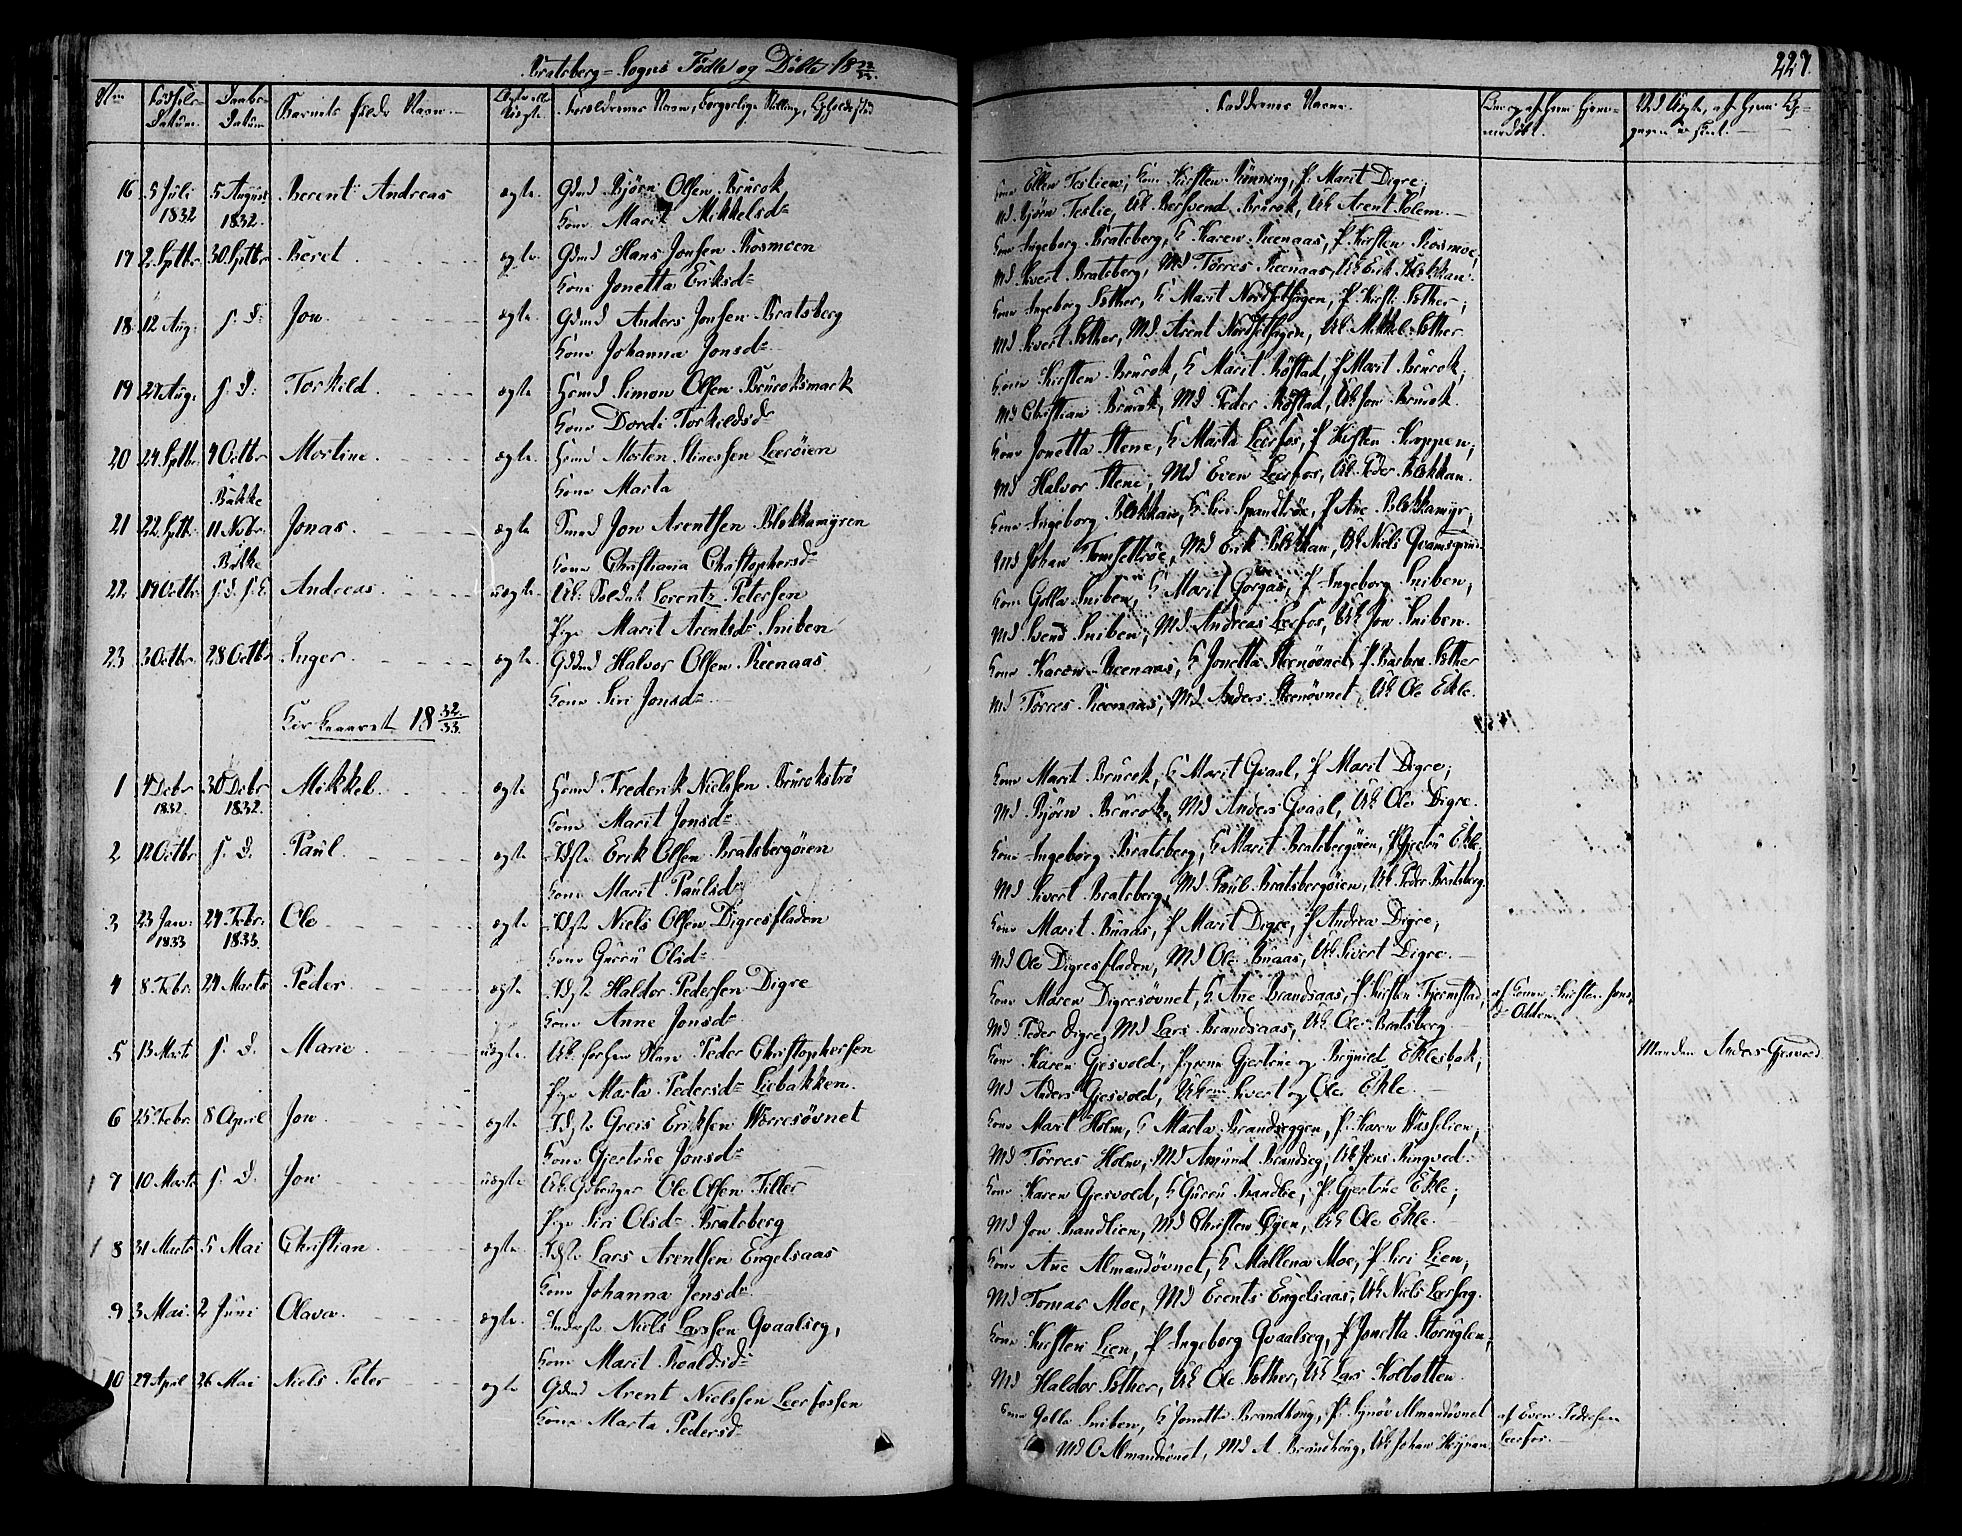 Bratsberg-Sogns Fødte og Døbte 18 32/33.
227.
No
Fødsels Datum.
Daabs Datum
Barnets fulde Navn.
Ægte eller Uægte.
Forældrenes Navn, borgerlige Stilling, Opholdssted
Faddernes Navne.
16 5 Juli 1832 5 August 1832. Berent Andreas ægte. Gdmd Bjørn Olsen Brurok
Kone Marit Mikkelsd.
Kone Ellen Teslien, Kone Kirsten Rønning, P. Marit Digre,
Md Bjørn Teslie, Uk Bersvend Brurok, Uk Arent Solem.
17 2. Sptbr. 30. Sptbr. Beret ægte. Gdmd Hans Jonsen Rosmoen
Kone Jonetta Eriksd.
Kone Ingeborg Bratsberg, K Karen Reenaas, P. Kirsten Rosmoe,
Md Sivert Bratsberg, Md Tørres Reenaas, Uk Erik Blekkan.
18. 12 Aug. s. D. Jon ægte. Gdmd Anders Jonsen Bratsberg
Kone Johanna Jonsd.
Kone Ingeborg Sæther, K Marit Nordsethagen, P. Kirsti Sæther,
Md Sivert Sæther, Md Arent Nordsethagen, Uk Mikkel Sæther
19 27 Aug. s. D. Torkild ægte Hsmd Simon Olsen Bruroksmark
Kone Dordi Torkildsd.
Kone Kirsten Brurok, K Marit Røstad, P. Marit Brurok,
Md Christian Brurok, Md Peder Røstad, Uk Jon Brurok.
20 24. Sptbr. 7 Octbr. Bakke Mortine ægte. Hsmd Morten Stinessen Leerøien
Kone Marta
Kone Jonetta Stene, K Marta Leerfos, P. Kirsten Kroppen,
Md Halvor Stene, Md Even Leerfos, Uk Peder Blekkan.
21 22. Sptbr. 11 Nvbr. Bakke Jonas. ægte Smed Jon Arentsen Blekkamyren
Kone Christiana Christophersd.
Kone Ingeborg Blekkan, K Siri Grandtrøe, P. Ane Blekkamyr,
Md Johan Tomsettrøe, Md Erik Blekkan, Uk Niels
22. 19 Octbr. s. D. s. K. Andreas uægte Uk. Soldat Lorentz Petersen
Pige Marit Arentsd. Sniben
Kone Golla Sniben, K Marit Gorgas, P. Ingeborg Sniben,
Md Svend Sniben, Md Andreas Leerfos, Uk Jon Sniben.
23 3 Octbr. 28 Octbr. Inger. ægte Gdmd Halvor Olsen Reenaas
Kone Siri Jonsd.
Kone Karen Reenaas, K Jonetta Steenøvnet, P. Barbra Sæther
Md Tørres Reenaas, Md Anders Steenøvnet, Uk Ole Ekle.
Kirkeaaret 18 32/33.
1 4 Debr 1832. 30 Debr 1832. Mikkel. ægte Hsmd Frederik Nielssen Brurokstrø
Kone Marit Jonsd.
Kone Marit Brurok, K Marit Qvaal, P. Marit Digre,
Md Bjørn Bruroks, Md Anders Qvaal, Uk Ole Digre.
2 12 Octbr s. D. Paul. ægte Indste Erik Olsen Bratsbergøien
Kone Marit Paulsd.
Kone Ingeborg Bratsberg, K Marit Bratsbergøien, P. Gjertru Ekle,
Md Sivert Bratsberg, Md Paul Bratsbergøien, Uk Peder Bratsberg.
3 23 Jan. 1833 24 Febr. 1833. Ole ægte Indste Niels Olsen Digresfladen
Kone Gurru Olsd.
Kone Marit Buaas, P. Marit Digre, P. Andrea Digre,
Md Ole Digresfladen, Md Ole Buaas, Uk Sivert Digre.
4 8. Febr. 24 Marts Peder ægte Indste Haldor Pedersen Digre
Kone Anne Jonsd.
Kone Maren Digresøvnet, K Ane Brandsaas, P. Kirsten Tjernstad,
Md Peder Digre, Md Lars Brandsaas, Uk Ole Bratsberg
af Konen Kirsten Jonsd. Odden.
5 13 Marts s. D. Marie uægte Uk. Peder Christophersen
Pige Marta Pedersd. Liebakken.
Kone Karen Gjesvold, Pigerne Gjertrue og Brynild Eklesbak,
Md Anders Gjesvold, Ukne Sivert og Ole Ekle.
Manden Anders Gjesvold
6 25 Febr. 8 April Jon ægte Indste Greis Eriksen Worresøvnet
Kone Gjertrue Jonsd.
Kone Marit Holm, K Marta Brandseggen, P. Karen Wasselien,
Md Tørres Holm, Md Amund Brandseg, Uk Jens Ringved.
7 10 Marts s. D. Jon uægte Uk Gdbruger Ole Olsen Tiller
Pige Siri Olsd. Bratsberg
Kone Karen Gjesvold, K Gurru Brandlie, P. Gjertrue Ekle,
Md Jon Brandlien, Md Christen Øyen, Uk Ole Ekle.
8 31 Marts 5 Mai Christian ægte Indste Lars Arentsen Engelsaas
Kone Johanna Jensd.
Kone Ane Almandøvnet, K Mallena Moe, P. Siri Lien,
Md Tomas Moe, Md Erents Engelsaas, Uk Niels Leerseg.
9 3 Mai. 2 Juni Olava ægte. Inderste Niels Larssen Qvaalseg,
Kone Marit Roaldsd.
Kone Kirsten Lien, P. Ingeborg Qvaalseg, P. Jonetta Storuglen,
Md Haldor Sæther, Uk Ole Sæther, Uk Lars Kolbotten.
10 29 April 26 Mai Niels Peter ægte Gdmd Arent Nielssen Leerfossen
Kone Marta Pedersd.
Kone Golla Sniben, K Jonetta Brandhoug, P. Synøv Almandøvnet
Md O Almandøvnet, Md A. Brandhoug, Uk Johan
af Even Pedersen Leerfos.